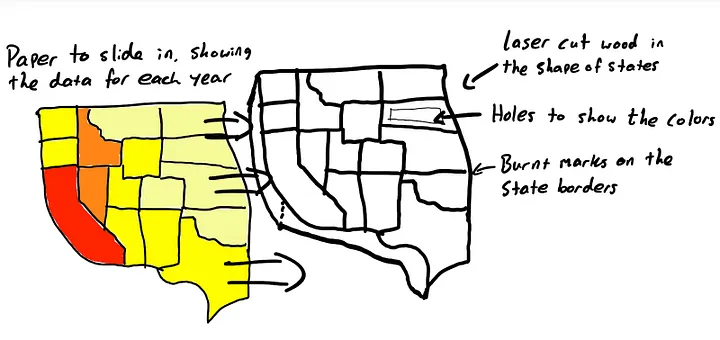 Paper to slide in, showing
the data for each year
laser cut wood in
the shape of states
Holes to show the colors
Burnt marks on the
State borders